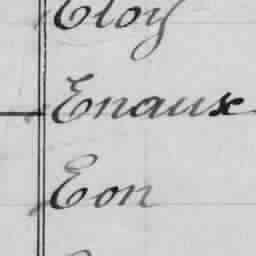 Eloy
Enaux
Eon